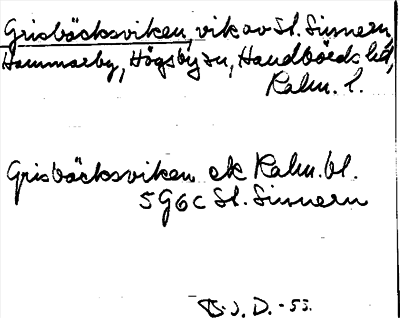 Grisbäcksviken, vik av St. Sinnern,
Hammarby, Högsby sn, Handbörds hd,
Kalm. l.
Grisbäcksviken ek Kalm. bl.
5G6c St. Sinnern
B. J. D. -53.